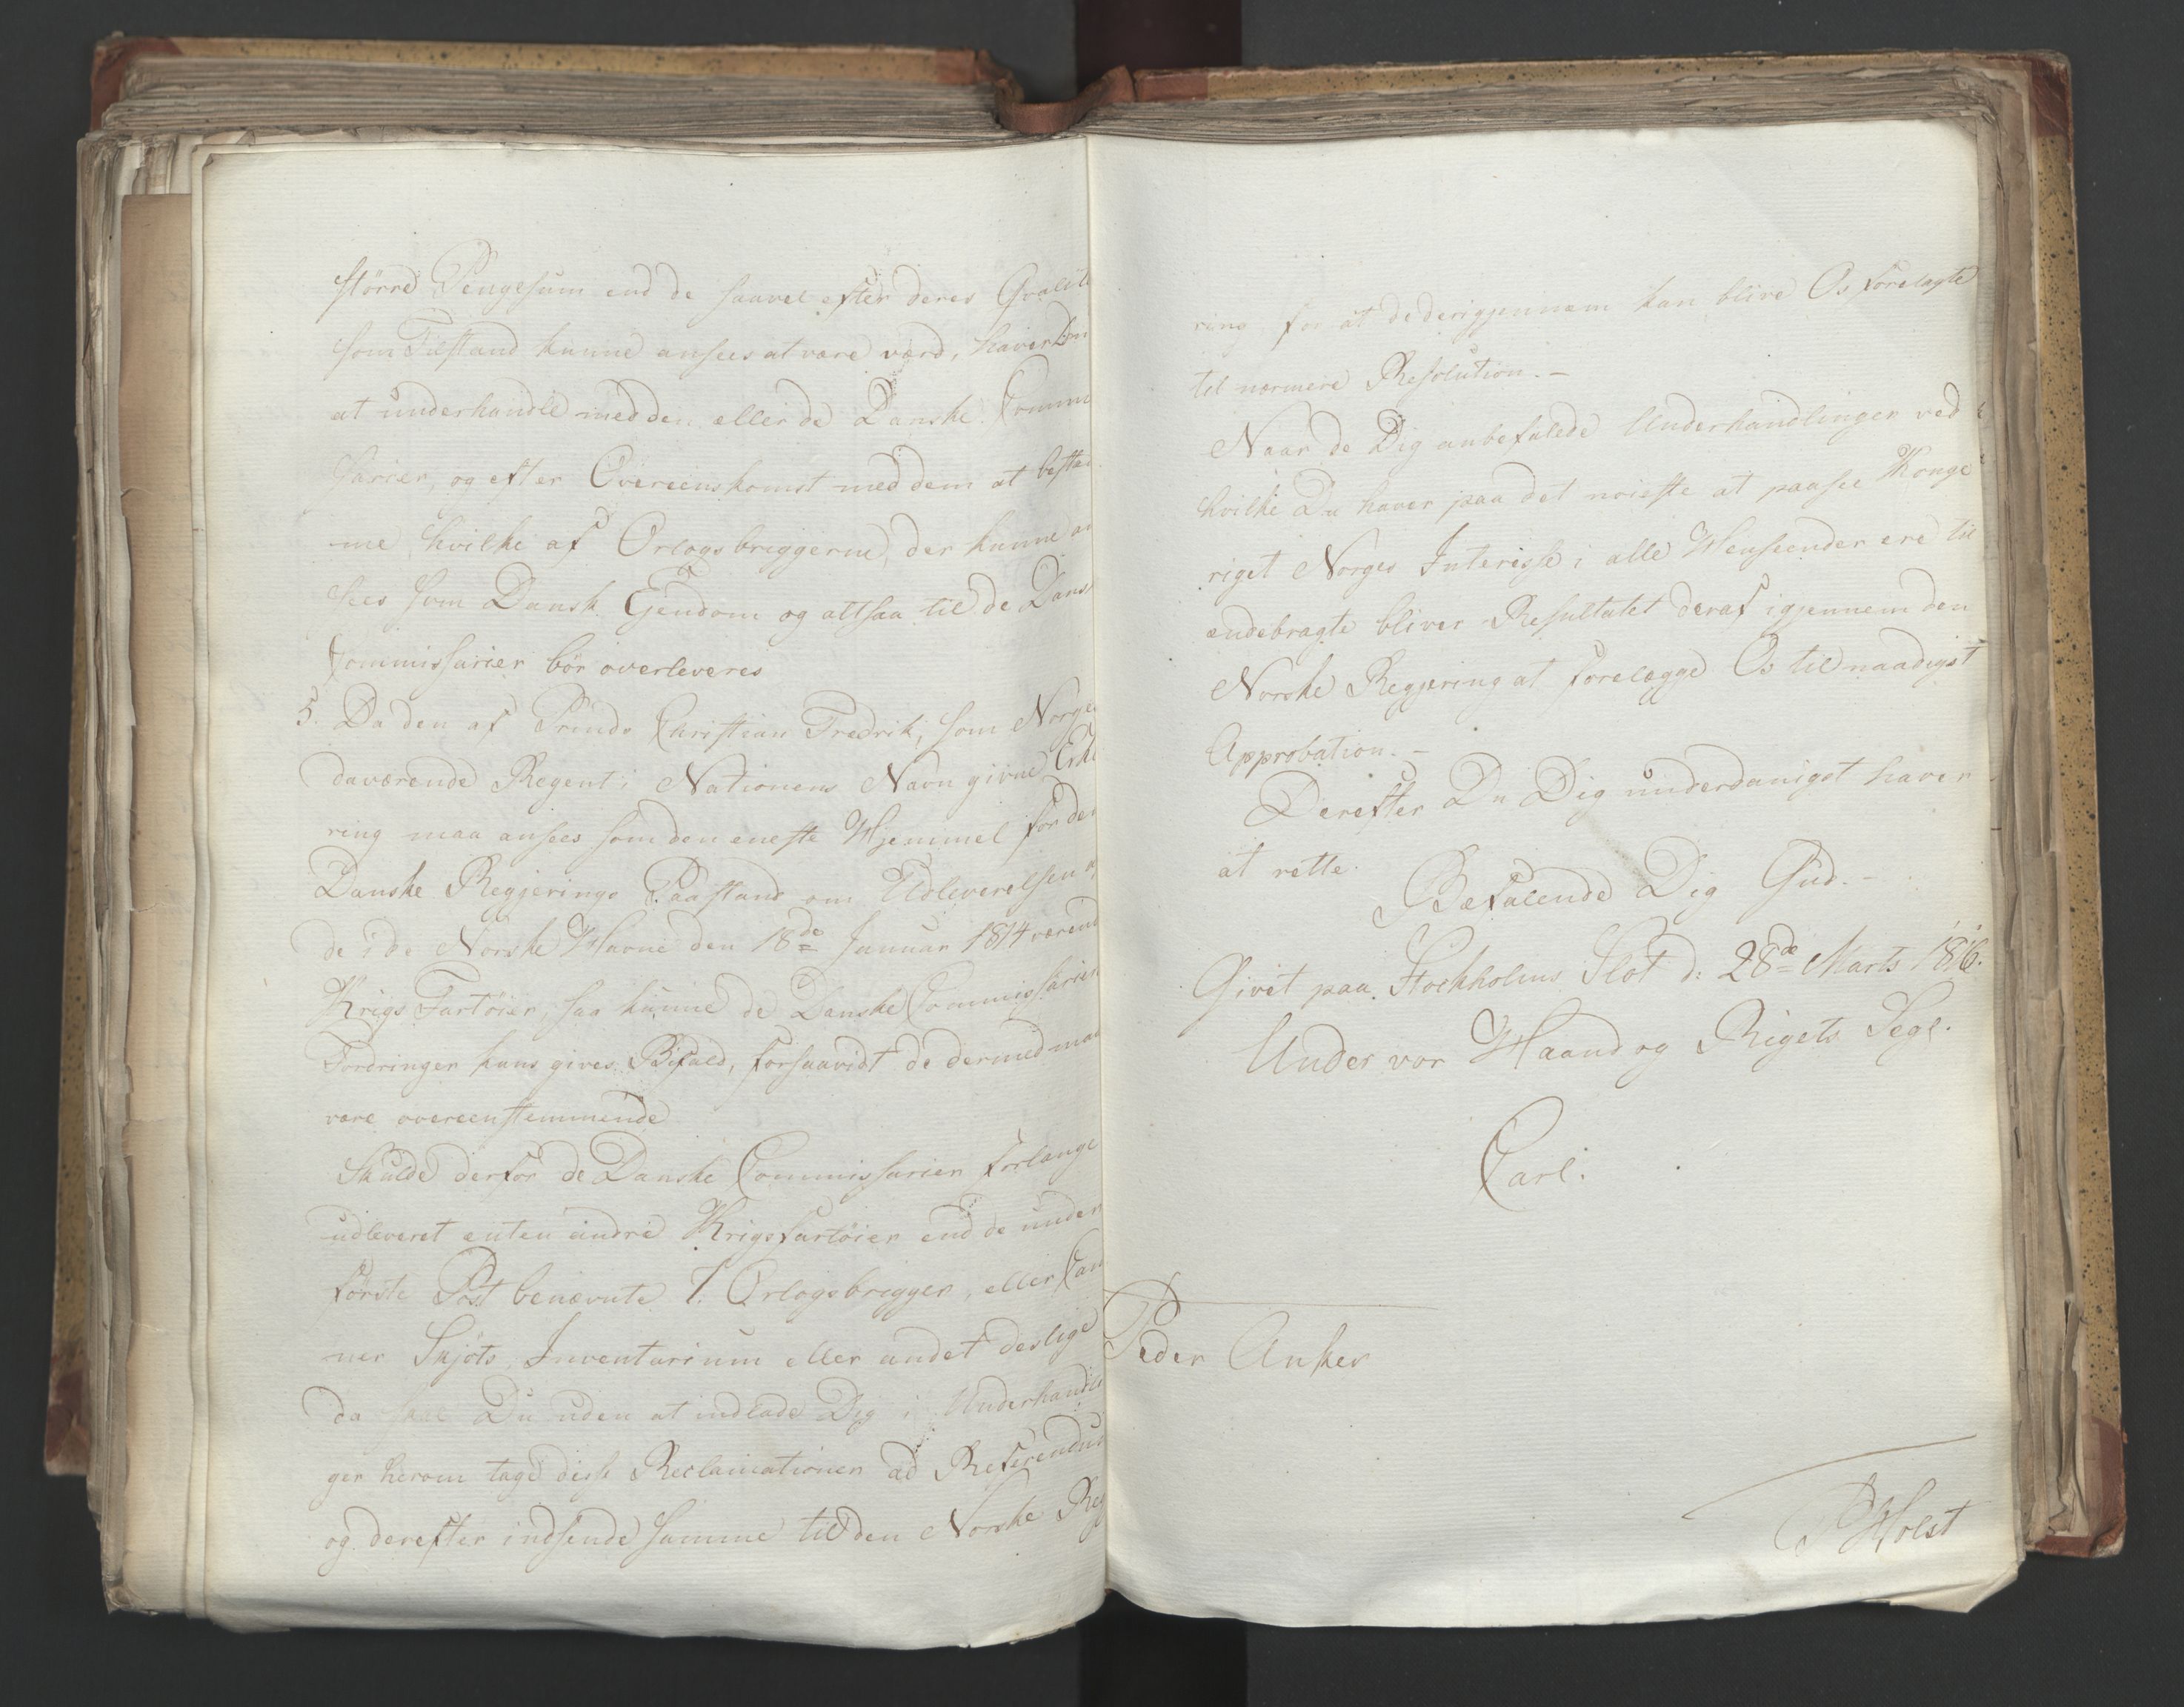 större Pengesum end de saavel efter deres Qvalite
som Tilstand kunne ansees at være værd, haver Du
at underhandle med den eller de Danske Commis
sarier, og efter Overeenskomst med dem at bestem
me, hvilke af Orlogsbriggerne, der kunne an
sees som Dansk Ejendom og altsaa til de Danske
Commissarier bör overleveres
5. Da den af Prinds Christian Fredrik, som Norges
daværende Regent i Nationens Navn givne Erklæ
ring maa ansees som den eneste Hjemmel for den
Danske Regjerings Paastand om Udleverelsen af
de i de Norske Havne den 18de Januar 1814 værende
Krigs Fartöier, saa kunne de Danske Commissariers
Fordringer kuns gives Bifald, forsaavidt de dermed maa
være overeenstemmende
Skulde derfor de Danske Commissarier forlange
udleveret enten andre Krigsfartöier end de under
förste Post benævnte 7. Orlogsbrigger, eller Cano
ner Skjöts, Inventarium eller andet deslige
da skal Du uden at indlade Dig i Underhandlin
ger herom tage disse Reclamationer ad Referendum
og derefter indsende samme til den Norske Regje
ring for at de derigjennem kan blive Os forelagte
til nærmere Resolution. –
Naar de Dig anbefalede Underhandlinger ved
hvilke Du haver paa det nöieste at paasee Konge
riget Norges Interesse i alle Henseender ere til
endebragte bliver Resultatet deraf igjennem den
Norske Regjering at forelægge Os til naadigst
Approbation. –
Derefter Du Dig underdanigst haver
at rette.
Befalende Dig Gud. –
Givet paa Stockholms Slot d: 28de Marts 1816.
Under vor Haand og Rigets Segl.
Carl.
Peder Anker
P Holst